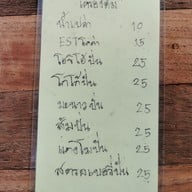 เครื่องดื่ม
น้ำเปล่า 10
EST โคล่า 15
โอริโอ้ปั่น 25
โกโก้ปั่น 25
มะนาวปั่น 25
ส้มปั่น 25
แตงโมปั่น 25
สตรอเบอรี่ปั่น 25